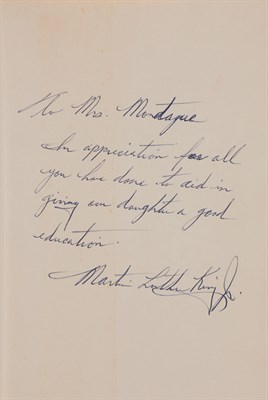 To Mrs. Montague
In appreciation for all
you have done to aid in
giving our daughter a good
education.
Martin Luther King Jr.